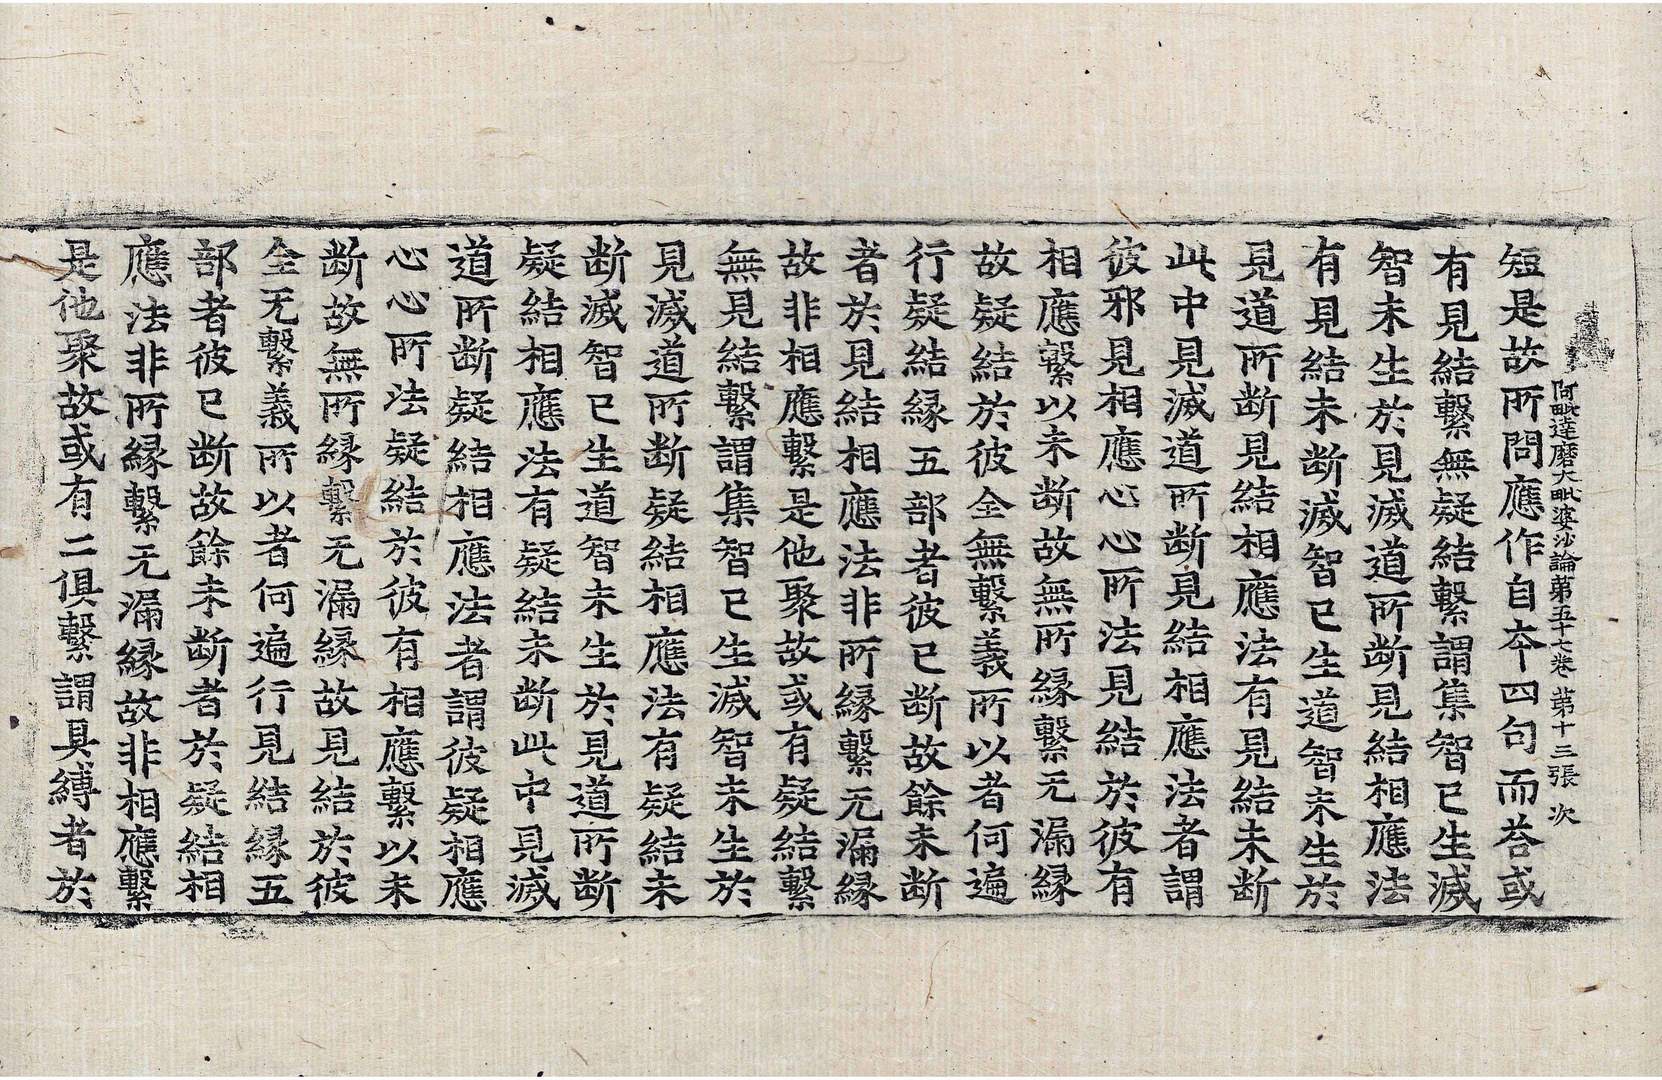 阿毗達磨大毗婆沙論第五十七卷 第十三張 次
短是故所問應作自本四句而荅或
有見結繫無疑結繫謂集智已生滅
智未生於見滅道所断見結相應法
有見結未断滅智已生道智未生於
見道所断見結相應法有見結未断
此中見滅道所断見結相應法者謂
彼邪見相應心心所法見結於彼有
相應繫以未断故無所縁繫无漏縁
故疑結於彼全無繫義所以者何遍
行疑結縁五部者彼已断故餘未断
者於見結相應法非所縁繫无漏縁
故非相應繫是他聚故或有疑結繫
無見結繫謂集智已生滅智未生於
見滅道所断疑結相應法有疑結未
断滅智已生道智未生於見道所断
疑結相應法有疑結未断此中見滅
道所断疑結相應法者謂彼疑相應
心心所法疑結於彼有相應繫以未
断故無所縁繫无漏縁故見結於彼
全无繫義所以者何遍行見結縁五
部者彼已断故餘未断者於疑結相
應法非所縁繫无漏縁故非相應繫
是他聚故或有二俱繫謂具縛者於